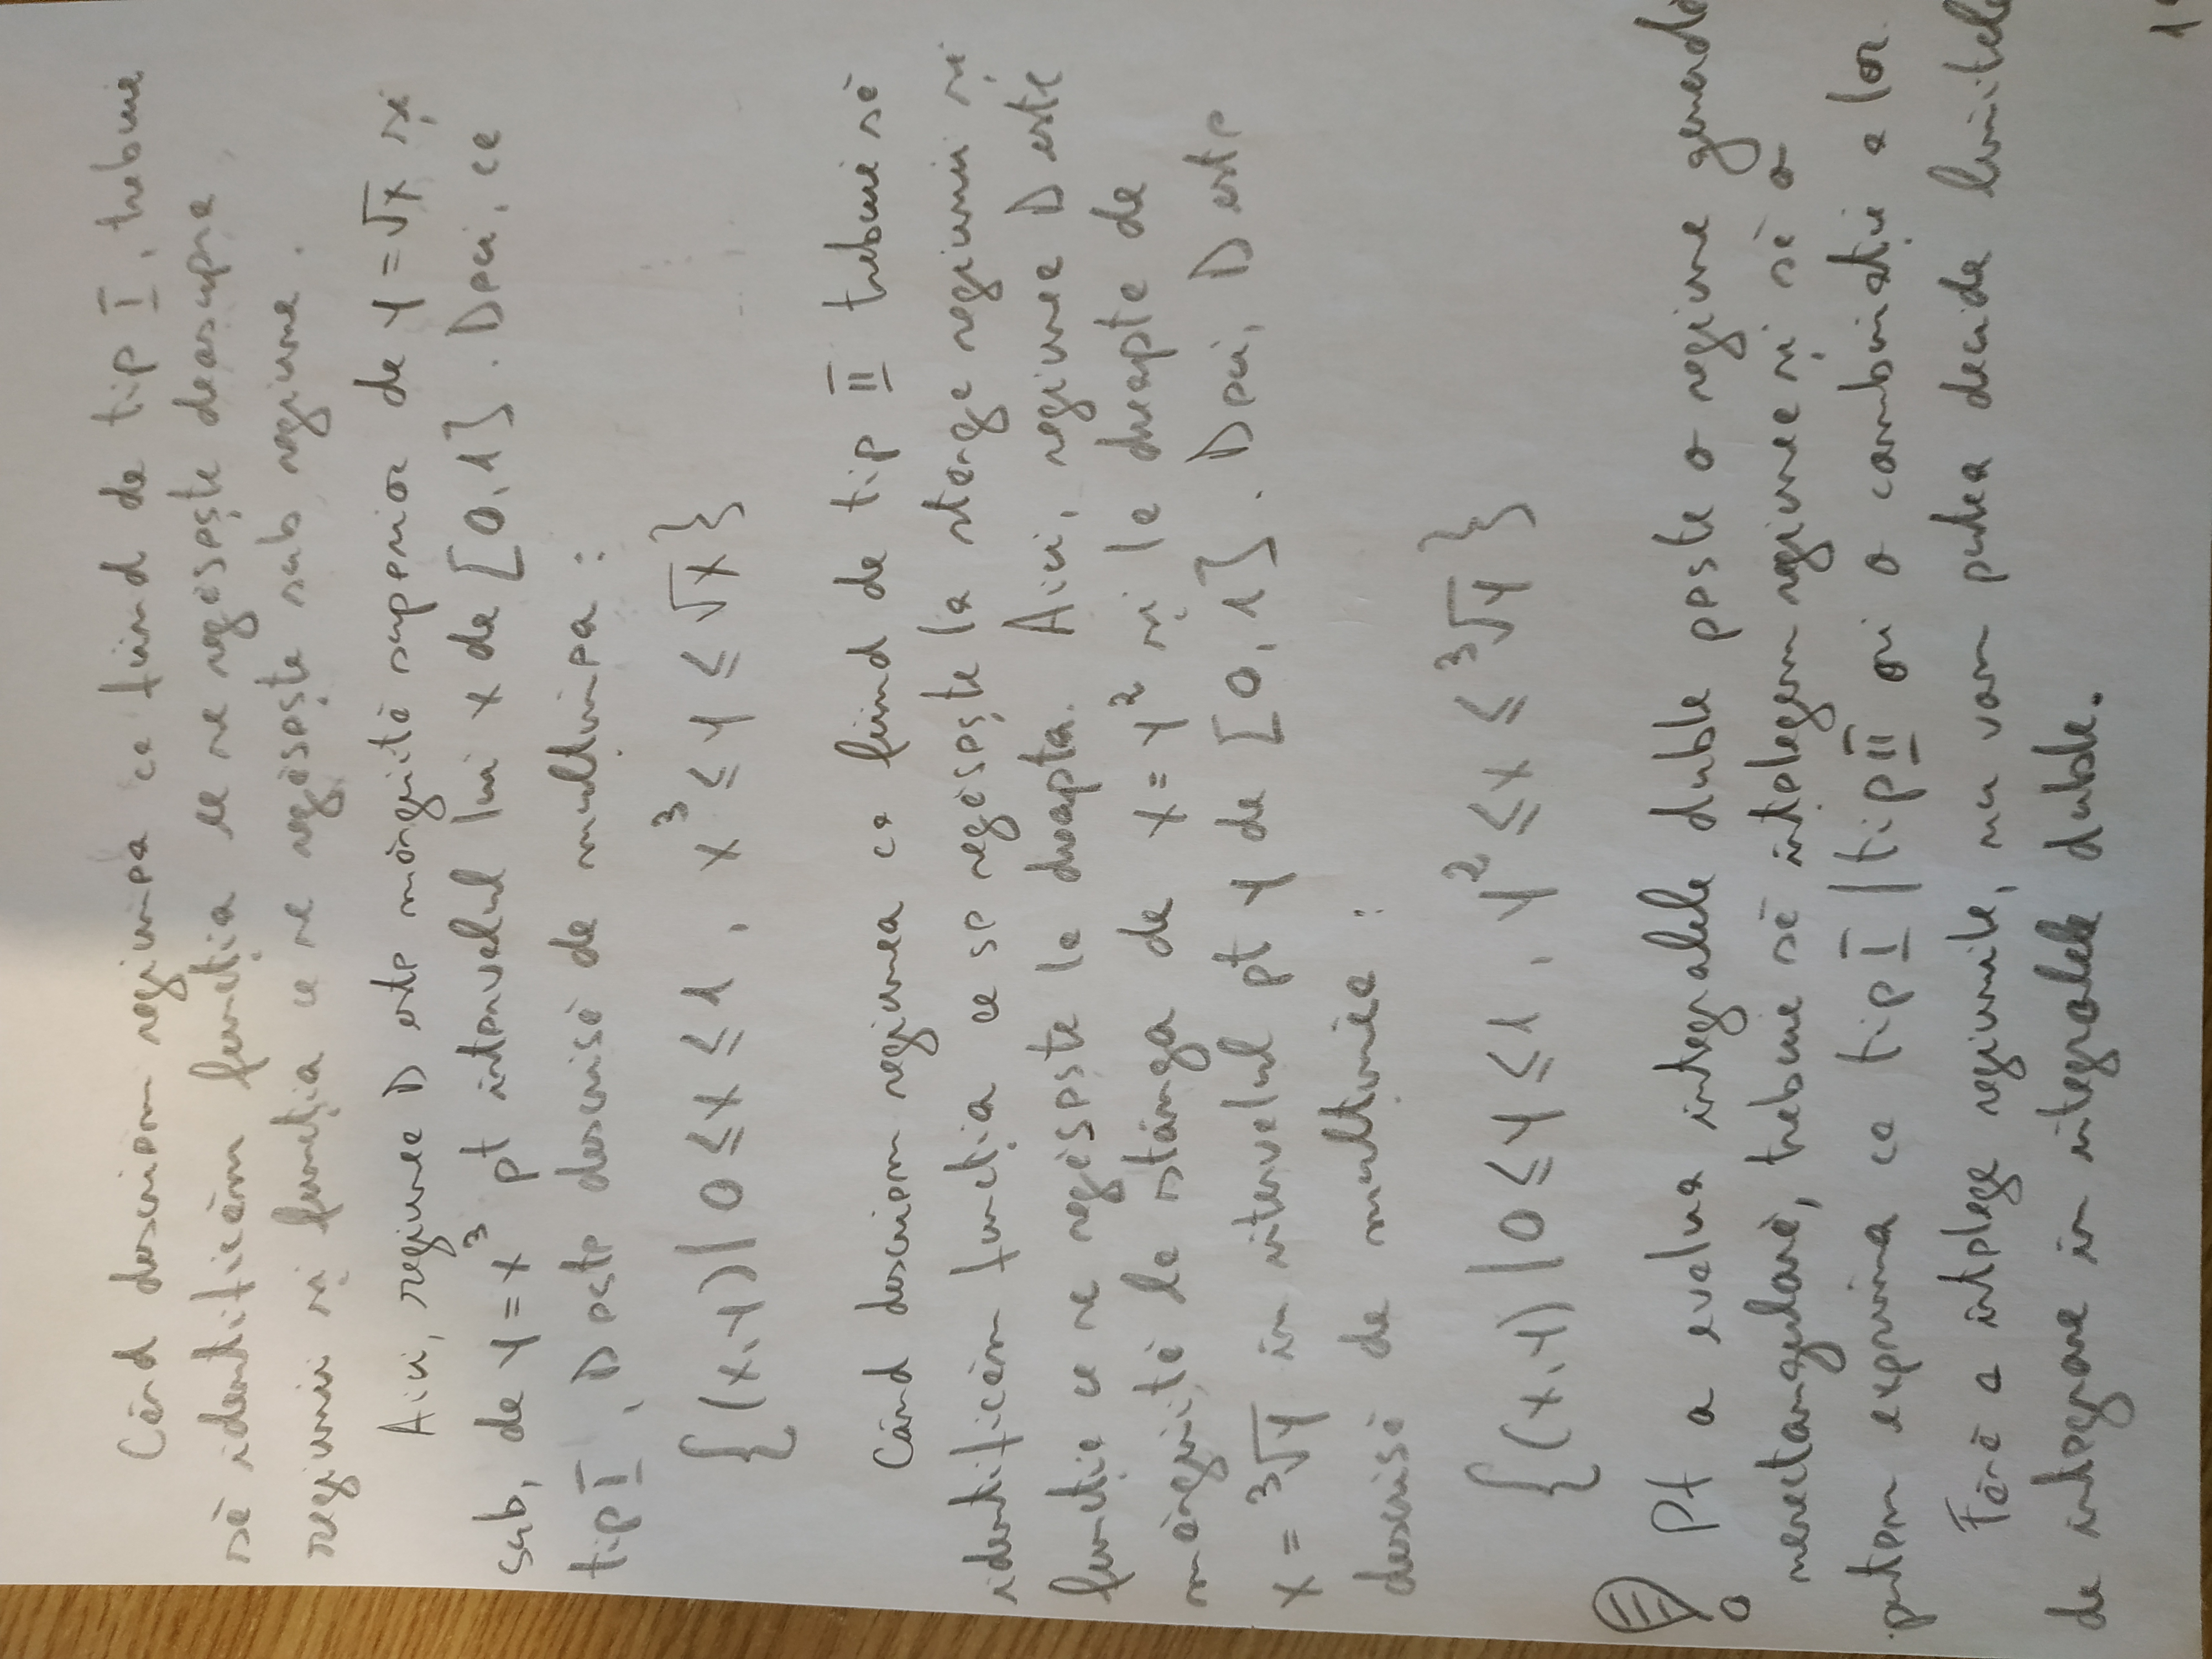 Când descriem regiunea ca fiind de tip I, trebuie
să identificăm funcția ce se regăsește deasupra
regiunii și funcția ce se regăsește sub regiune.
Aici, regiunea D este mărginită superior de y = √x și
sub, de y = x³ pt intervalul lui x de [0,1]. Deci, ca
tip I, D este descrisă de mulțimea :
{(x,y) | 0 ≤ x ≤ 1, x³ ≤ y ≤ √x}
Când descriem regiunea ca fiind de tip II trebuie să
identificăm funcția ce se regăsește la stânga regiunii și
funcția ce se regăsește la dreapta. Aici, regiunea D este
mărginită la stânga de x = y² și la dreapta de
x = ³√y în intervalul pt y de [0,1]. Deci, D este
descrisă de mulțimea :
{(x,y) | 0 ≤ y ≤ 1, y² ≤ x ≤ ³√y}
! Pt a evalua integralele duble peste o regiune generală
nerectangulară, trebuie să înțelegem regiunea și să o
putem exprima ca tip I / tip II ori o combinație a lor.
Fără a înțelege regiunile, nu vom putea decide limitele
de integrare în integralele duble.